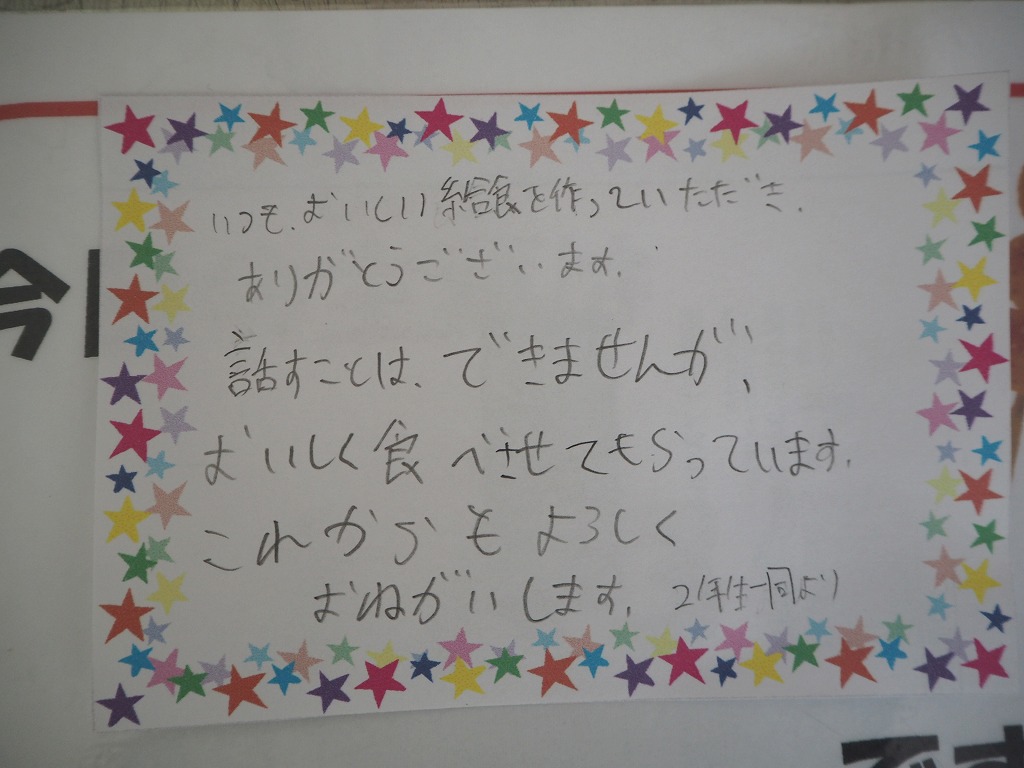 いつも、おいしい給食を作っていただき、
ありがとうございます。
話すことは、できませんが、
おいしく食べさせてもらっています。
これからもよろしく
おねがいします。 2年生一同より
今日
です